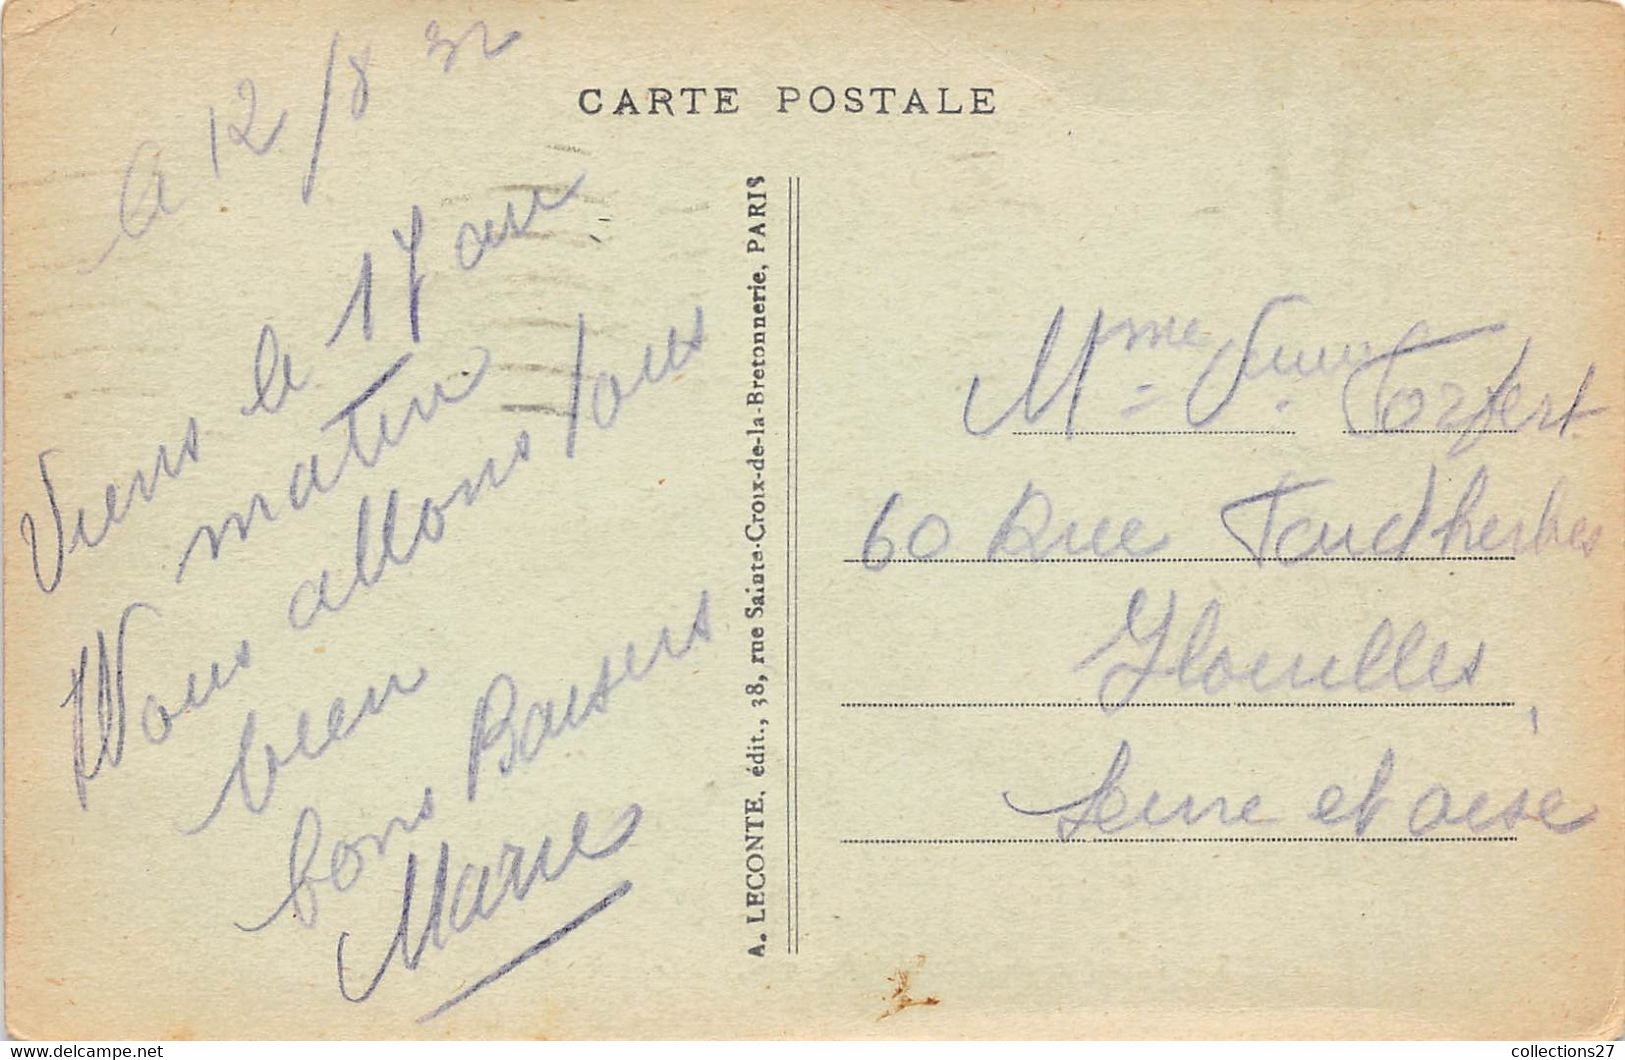 CARTE POSTALE
a 12/8 32
Viens le 17 au
matin
Nous allons tous
bien
bons Baisers
Marie
A. LECONTE, édit., 38, rue Sainte-Croix-de-la-Bretonnerie, PARIS
Mme
60 Rue Faidherbes
Seine et oise
collections27